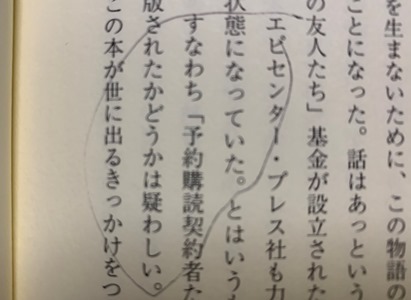 を生まないために、この物語の
ことになった。話はあっという
の友人たち」基金が設立された
エピセンター・プレス社も力
状態になっていた。とはいうも
すなわち「予約購読契約者た
版されたかどうかは疑わしい。
この本が世に出るきっかけをつ